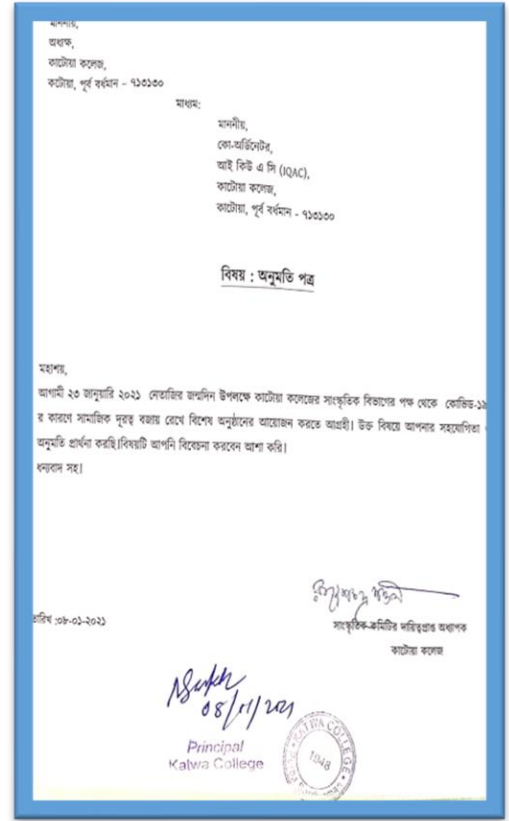 মাননীয়,
অধ্যক্ষ,
কাটোয়া কলেজ,
কাটোয়া, পূর্ব বর্ধমান - ৭১৩১৩০
মাধ্যম:
মাননীয়,
কো-অর্ডিনেটর,
আই কিউ এ সি (IQAC),
কাটোয়া কলেজ,
কাটোয়া, পূর্ব বর্ধমান - ৭১৩১৩০
বিষয় : অনুমতি পত্র
মহাশয়,
আগামী ২৩ জানুয়ারি ২০২১ নেতাজির জন্মদিন উপলক্ষে কাটোয়া কলেজের সাংস্কৃতিক বিভাগের পক্ষ থেকে কোভিড-১৯
র কারণে সামাজিক দূরত্ব বজায় রেখে বিশেষ অনুষ্ঠানের আয়োজন করতে আগ্রহী। উক্ত বিষয়ে আপনার সহযোগিতা
অনুমতি প্রার্থনা করছি।বিষয়টি আপনি বিবেচনা করবেন আশা করি।
ধন্যবাদ সহ।
তারিখ :০৮-০১-২০২১
সাংস্কৃতিক কমিটির দায়িত্বপ্রাপ্ত অধ্যাপক
কাটোয়া কলেজ
08/01/2021
Principal
Katwa College
KATWA COLLEGE
1948